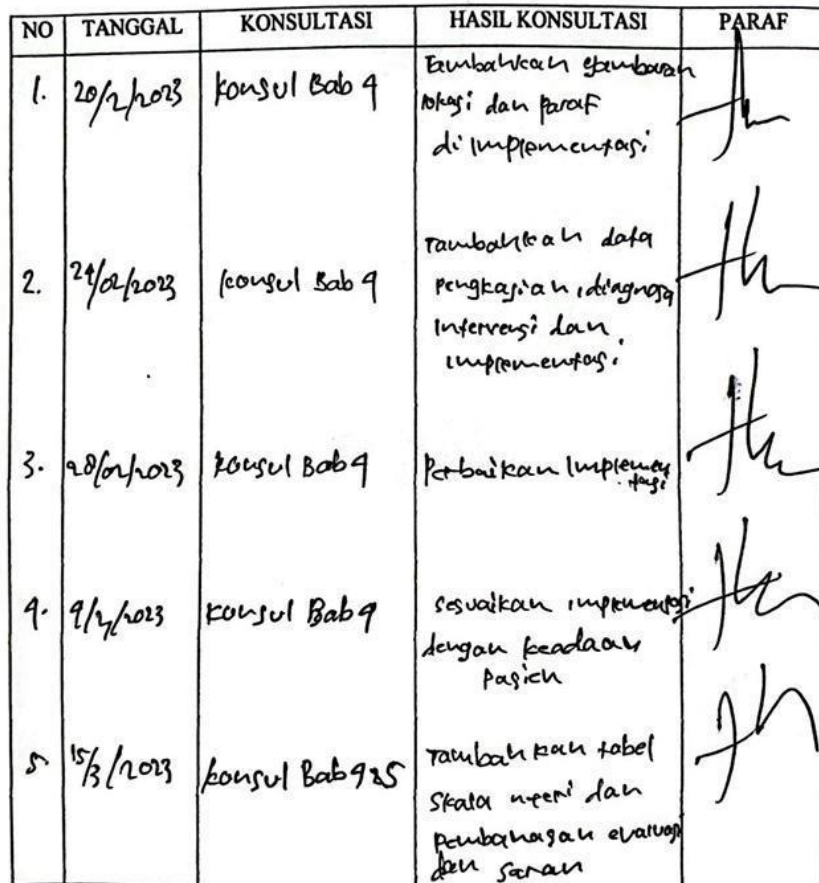 NO TANGGAL KONSULTASI HASIL KONSULTASI PARAF
1. 20/2/2023 Konsul Bab 4 Tambahkan gambaran
lokasi dan paraf
di implementasi
2. 24/02/2023 Konsul Bab 4 Tambahkan data
pengkajian, diagnosa
Intervensi dan
implementasi
3. 28/02/2023 Konsul Bab 4 Perbaikan Implemen
tasi
4. Konsul Bab 4 sesuaikan implementasi
dengan keadaan
Pasien
5 15/3/2023 Konsul Bab 4&5 Tambahkan tabel
Skala nyeri dan
pembahasan evaluasi
dan saran